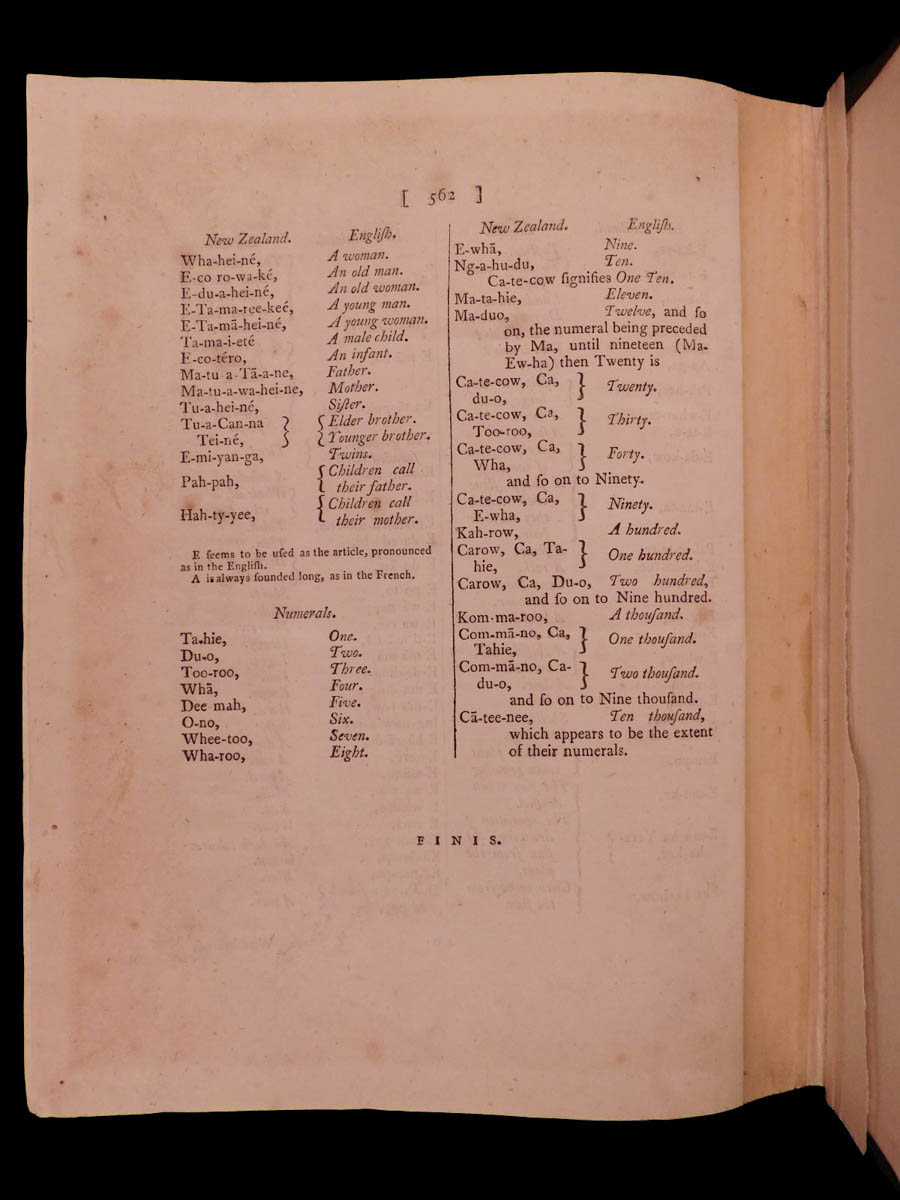 [ 562 ]
New Zealand. Engliſh.
Wha-hei-né, A woman.
E-co ro-wa-ké, An old man.
E-du-a-hei-né, An old woman.
E-Ta-ma-ree-keé, A young man.
E-Ta-mā-hei-né, A young woman.
Ta-ma-i-eté A male child.
E-co-téro, An infant.
Ma-tu a-Tā-a-ne, Father.
Ma-tu-a-wa-hei-ne, Mother.
Tu-a-hei-né, Siſter.
Tu-a-Can-na } { Elder brother.
Tei-né, Younger brother.
E-mi-yan-ga, Twins.
Pah-pah, { Children call
their father.
Hah-ty-yee, { Children call
their mother.
E ſeems to be uſed as the article, pronounced
as in the Engliſh.
A is always ſounded long, as in the French.
Numerals.
Ta-hie, One.
Du-o, Two.
Too-roo, Three.
Whā, Four.
Dee mah, Five.
O-no, Six.
Whee-too, Seven.
Wha-roo, Eight.
New Zealand. Engliſh.
E-whā, Nine.
Ng-a-hu-du, Ten.
Ca-te-cow ſignifies One Ten.
Ma-ta-hie, Eleven.
Ma-duo, Twelve, and ſo
on, the numeral being preceded
by Ma, until nineteen (Ma-
Ew-ha) then Twenty is
Ca-te-cow, Ca, } Twenty.
du-o,
Ca-te-cow, Ca, } Thirty.
Too-roo,
Ca-te-cow, Ca, } Forty.
Wha,
and ſo on to Ninety.
Ca-te-cow, Ca, } Ninety.
E-wha,
Kah-row, A hundred.
Carow, Ca, Ta- } One hundred.
hie,
Carow, Ca, Du-o, Two hundred,
and ſo on to Nine hundred.
Kom-ma-roo, A thouſand.
Com-mā-no, Ca, } One thouſand.
Tahie,
Com-mā-no, Ca- } Two thouſand.
du-o,
and ſo on to Nine thouſand.
Cā-tee-nee, Ten thouſand,
which appears to be the extent
of their numerals.
FINIS.